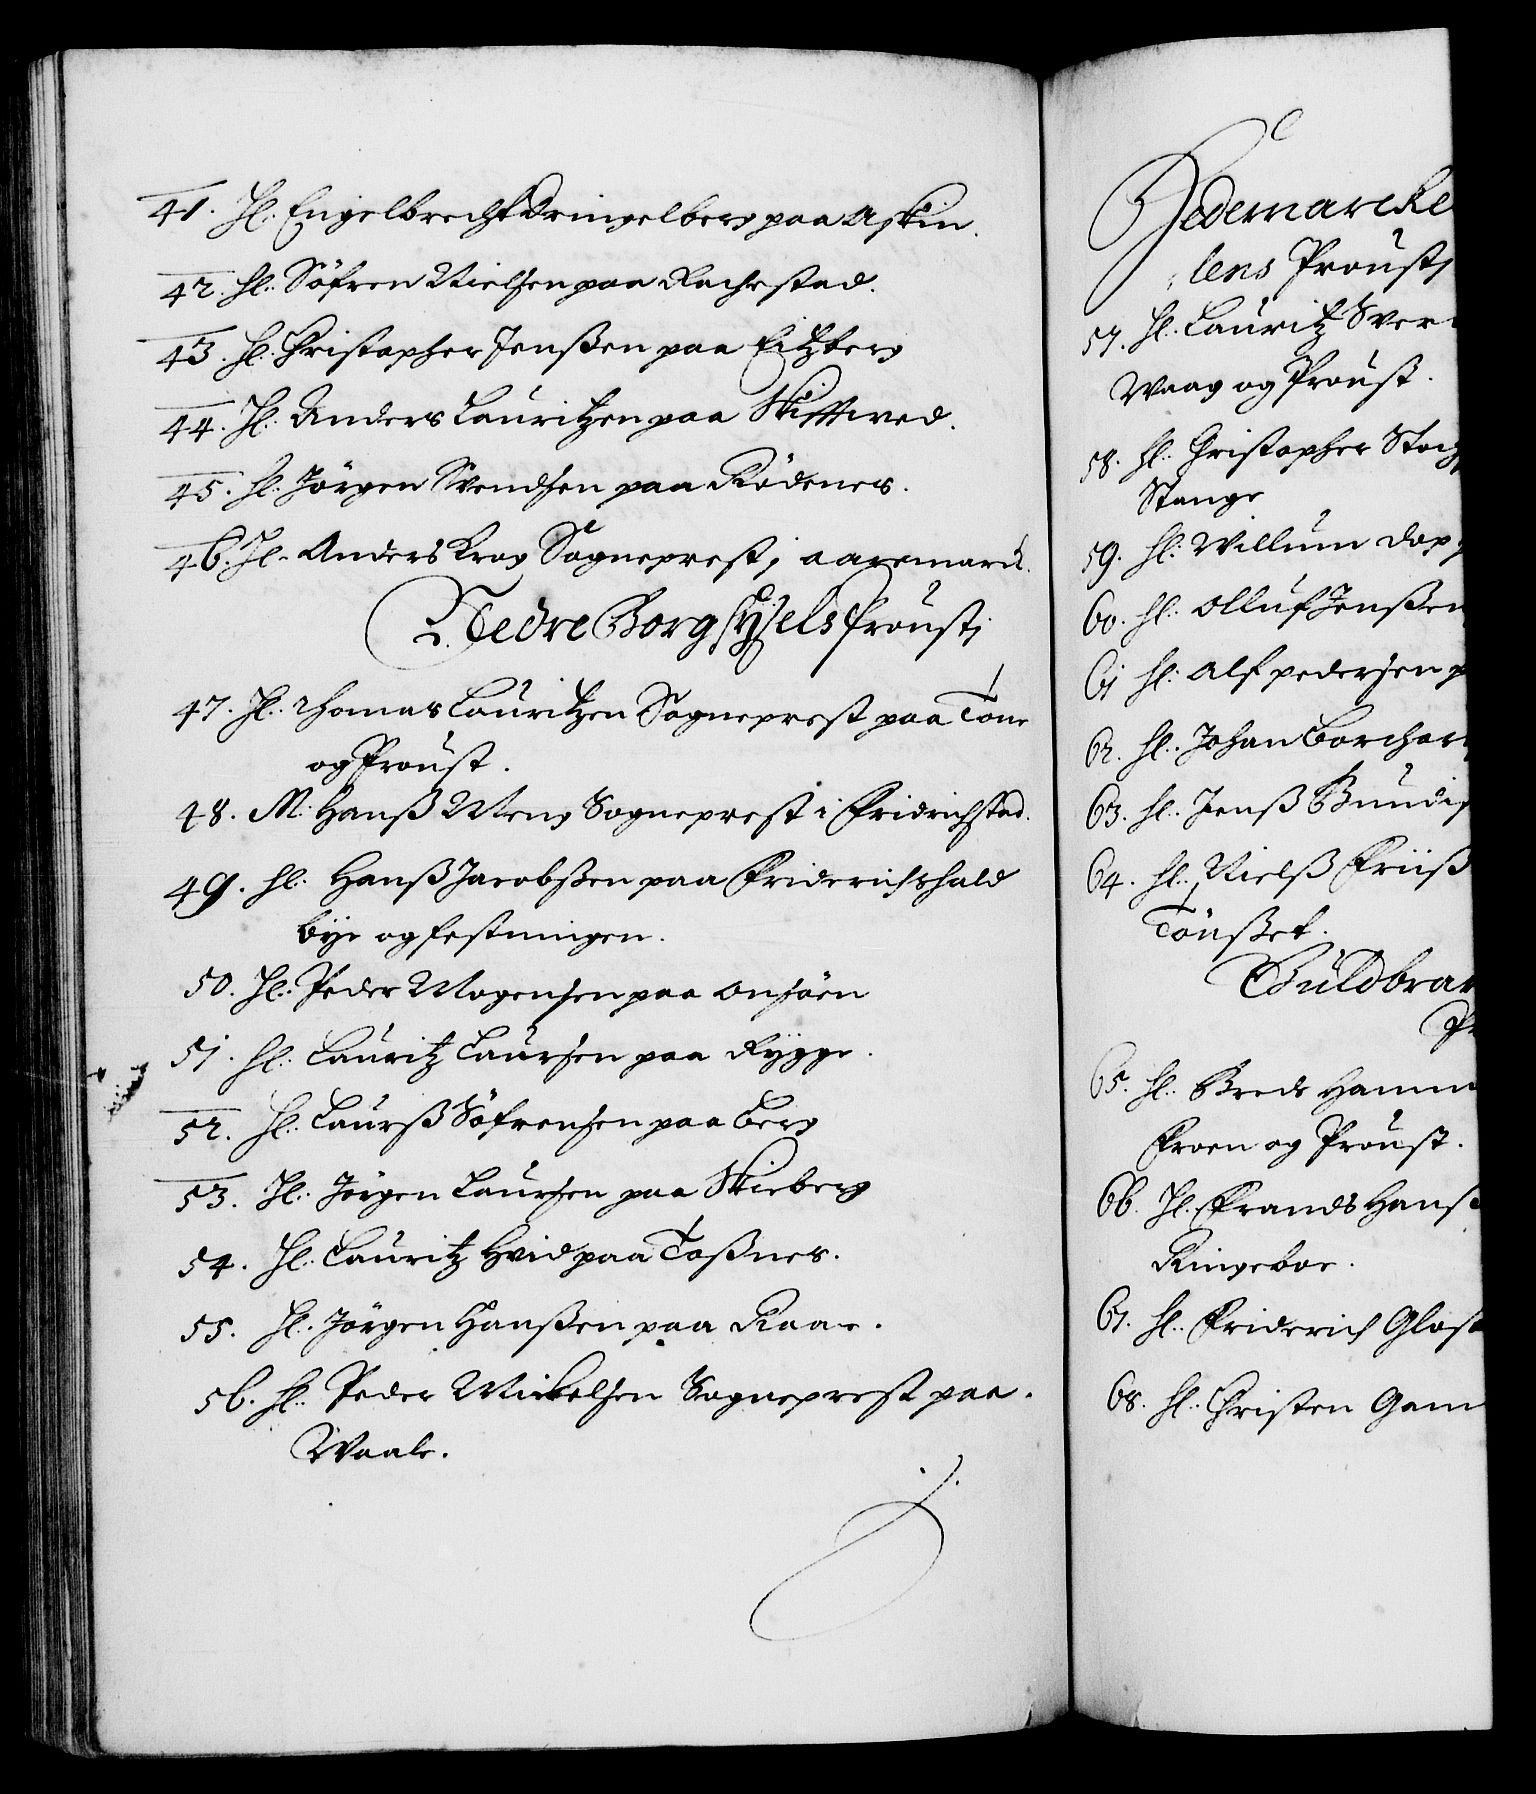 41. Hl: Engelbrecht Dringelberg paa Askin.
42. Hl: Söfren Nielsen paa Rachestad.
43. Hl: Christopher Jenßen paa Eitzberg
44. Hl: Anders Lauritzen paa Skifftwed.
45. Hl: Jörgen Svendsen paa Rödenes.
46. Hl: Anders Krag Sogneprest i Aaremarck.
Nedre Borgsyssels Prousti
47. Hl: Thomas Lauritzen Sogneprest paa Tune
og Proust.
48. M: Hanß Meng Sogneprest i Fridrichstad.
49. Hl: Hanß Jacobßen paa Friderichshald
bye og festningen.
50. Hl: Peder Mogensen paa Onsöen
51. Hl: Lauritz Laursen paa Rygge.
52. Hl: Laurß Söfrensen paa Berg
53. Hl: Jörgen Laursen paa Skieberg
54. Hl: Lauritz Hvid paa Toßnes.
55. Hl: Jörgen Hanßen paa Raae.
56. Hl: Peder Mickelsen Sogneprest paa
Waale.
Hedemarcke
lens Prousti
57. Hl: Lauritz Sver
Waag og Proust.
58. Hl: Christopher Stoch
Stange
59. Hl: Willum Dop
60. Hl: Olluf Jenßen
61 Hl: Alf Pedersen p
62. Hl: Johan Borchar
63. Hl: Jenß Bundi
64. Hl: Nielß Friiß
Tönßet.
Guldbran
Pr
65. Hl: Brede Hamm
Froen og Proust.
66. Hl: Frands Hanß
Ringeboe.
67. Hl: Friderich Glos
68. Hl: Christen Gam